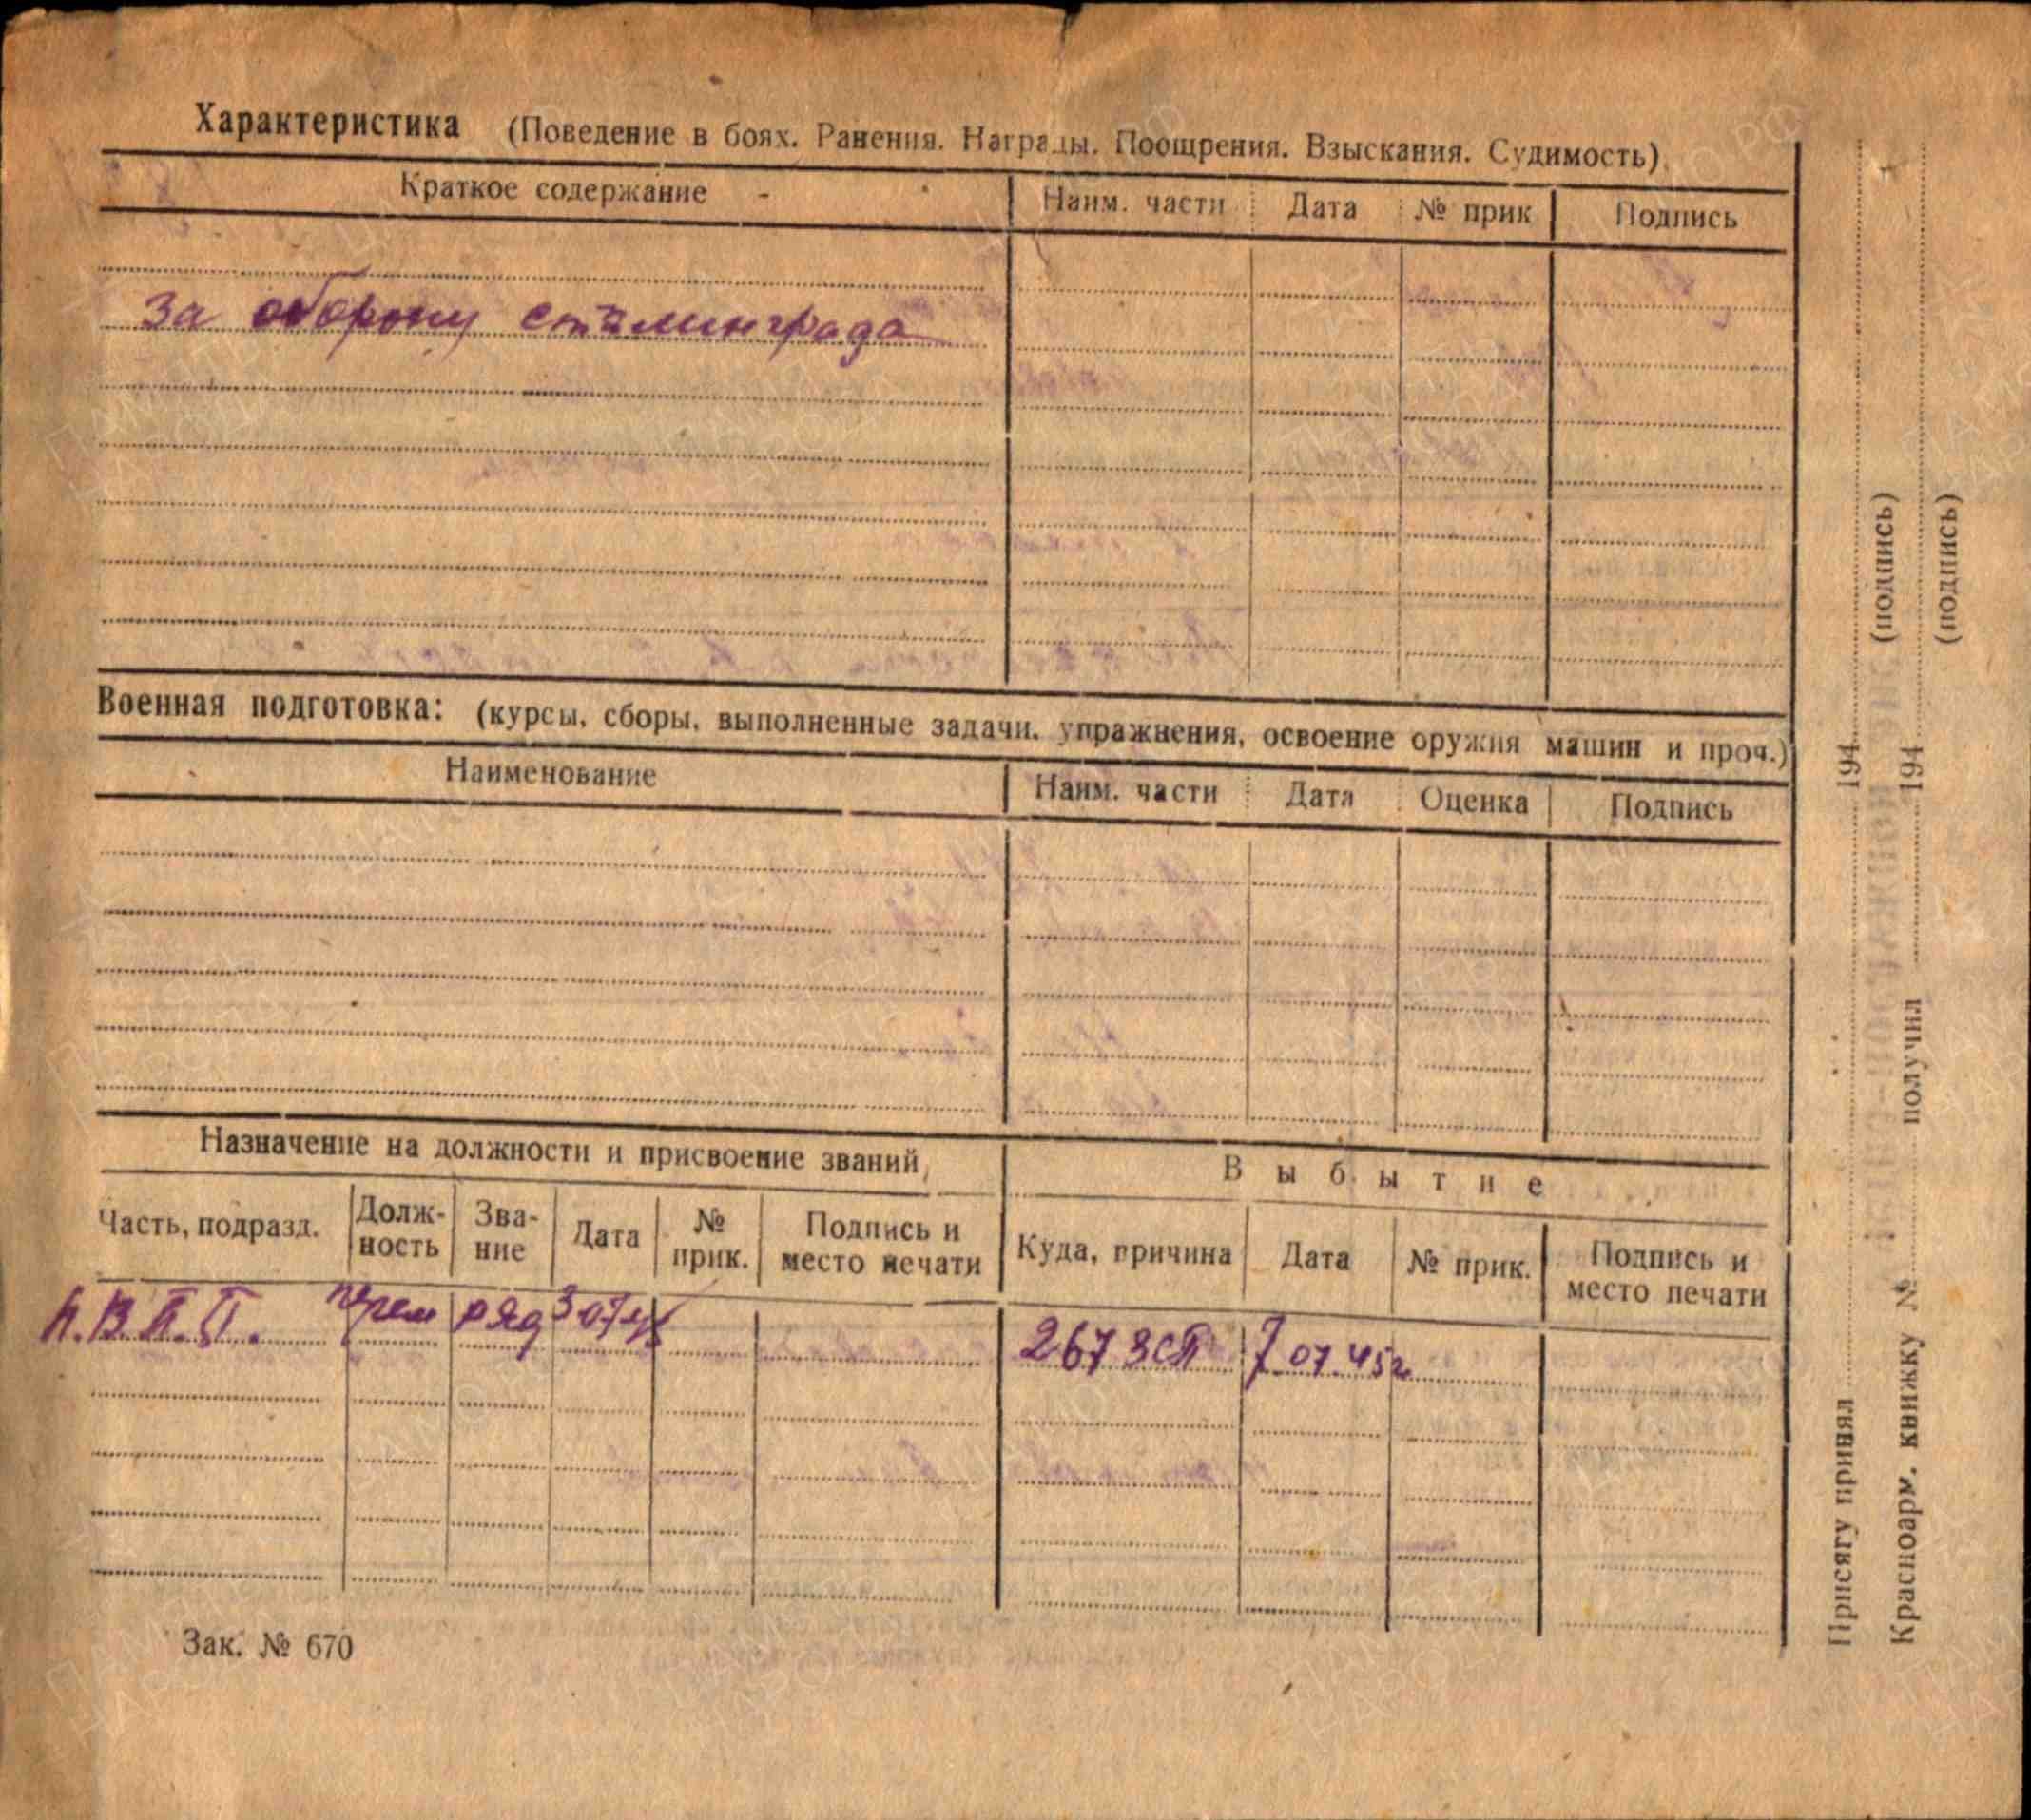 Характеристика (Поведение в боях. Ранения. Награды. Поощрения. Взыскания. Судимость).
Краткое содержание - Наим. части Дата № прик Подпись
За оборону сталинграда
Военная подготовка: (курсы, сборы, выполненные задачи, упражнения, освоение оружия машин и проч.)
Наименование Наим. части Дата Оценка Подпись
Назначение на должности и присвоение званий,
Выбытие
Часть, подразд. Долж- Зва- Дата № Подпись и Куда, причина Дата № прик. Подпись и
ность ние прик. место печати место печати
П.В.П.П. ряд 267 ЗСП 7.07.45г
Зак. № 670
Присягу принял 194
(подпись)
Красноарм. книжку № получил 194
(подпись)